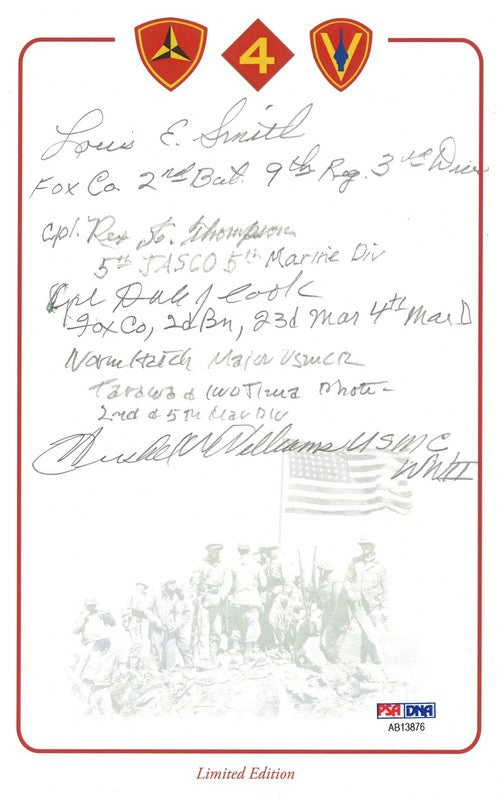 4
Louis E. Smith
Fox Co 2nd Bat. 9th Reg. 3rd
Cpl. Rex Thompson
5th JASCO 5th Marine Div
Cpl Dale J Cook
Fox Co, 2d Bn, 23d Mar 4th Mar D
Norm Hatch Major USMCR
Tarawa & Iwo Jima Photo-
2nd & 5th Mar Div
Williams USMC
WWII
PSA DNA
AB13876
Limited Edition